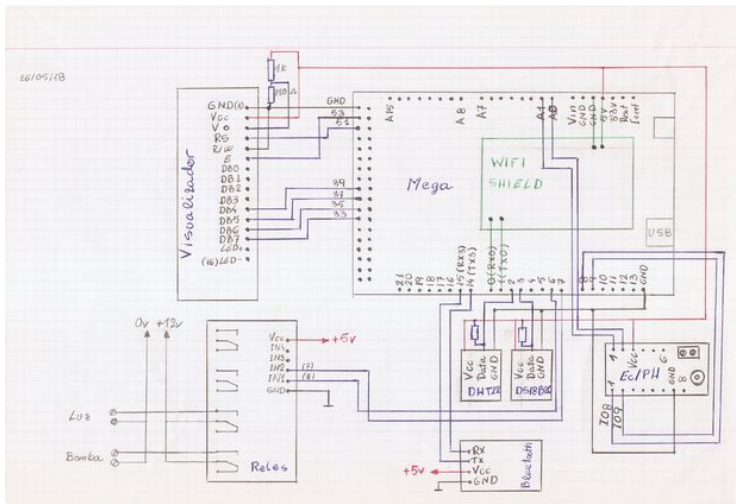 26/05/18
1K
GND(1)
Vcc
Vo
RS
R/W
E
DB0
DB1
DB2
DB3
DB4
DB5
DB6
DB7
LED+
(16)LED-
Visualizador
GND
53
51
39
37
35
33
A15
A8
A7
A1
A0
Vin
GND
GND
5V
3.3V
Mega
WIFI
SHIELD
USB
21
20
19
18
17
16
15(RX3)
14(TX3)
0(RX0)
1(TX0)
2
3
4
5
6
7
8
9
10
11
12
13
GND
0v +12v
Luz
Bomba
Vcc
IN4
IN3
IN2
IN1
GND
+5v
(7)
(6)
Reles
Vcc
Data
GND
DHT22
Vcc
Data
GND
DS18B20
1
Vcc
6
Ec/PH
1
GND
8
IO8
IO9
RX
TX
Vcc
GND
+5v
Bluetooth